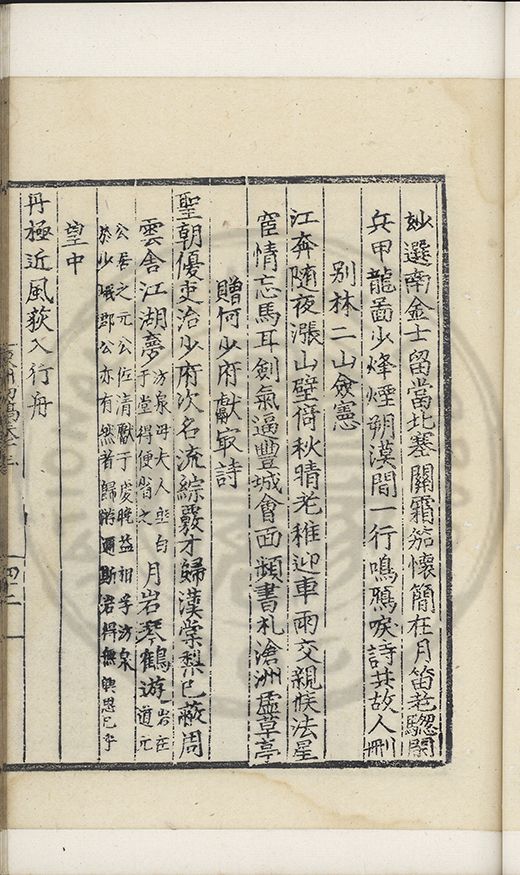 妙選南金士留當北塞關霜笳懷簡在月笛老驄閑
兵甲龍啚少烽煙朔漠間一行鳴鴈唳詩共故人刪
別林二山僉憲
江奔随夜漲山壁倚秋晴老稚迎車雨交親候法星
宦情忘馬耳劍氣逼豐城會面頻書札滄洲虛草亭
贈何少府獻寀詩
聖朝優吏治少府次名流綜覈才歸漢棠梨已蔽周
雲舍江湖夢方泉母夫人
于堂得便省之月岩琴鶴遊岩在
道元
公居之元公佐清獻于
亦有然者歸游
皇中
丹極近風荻入行舟